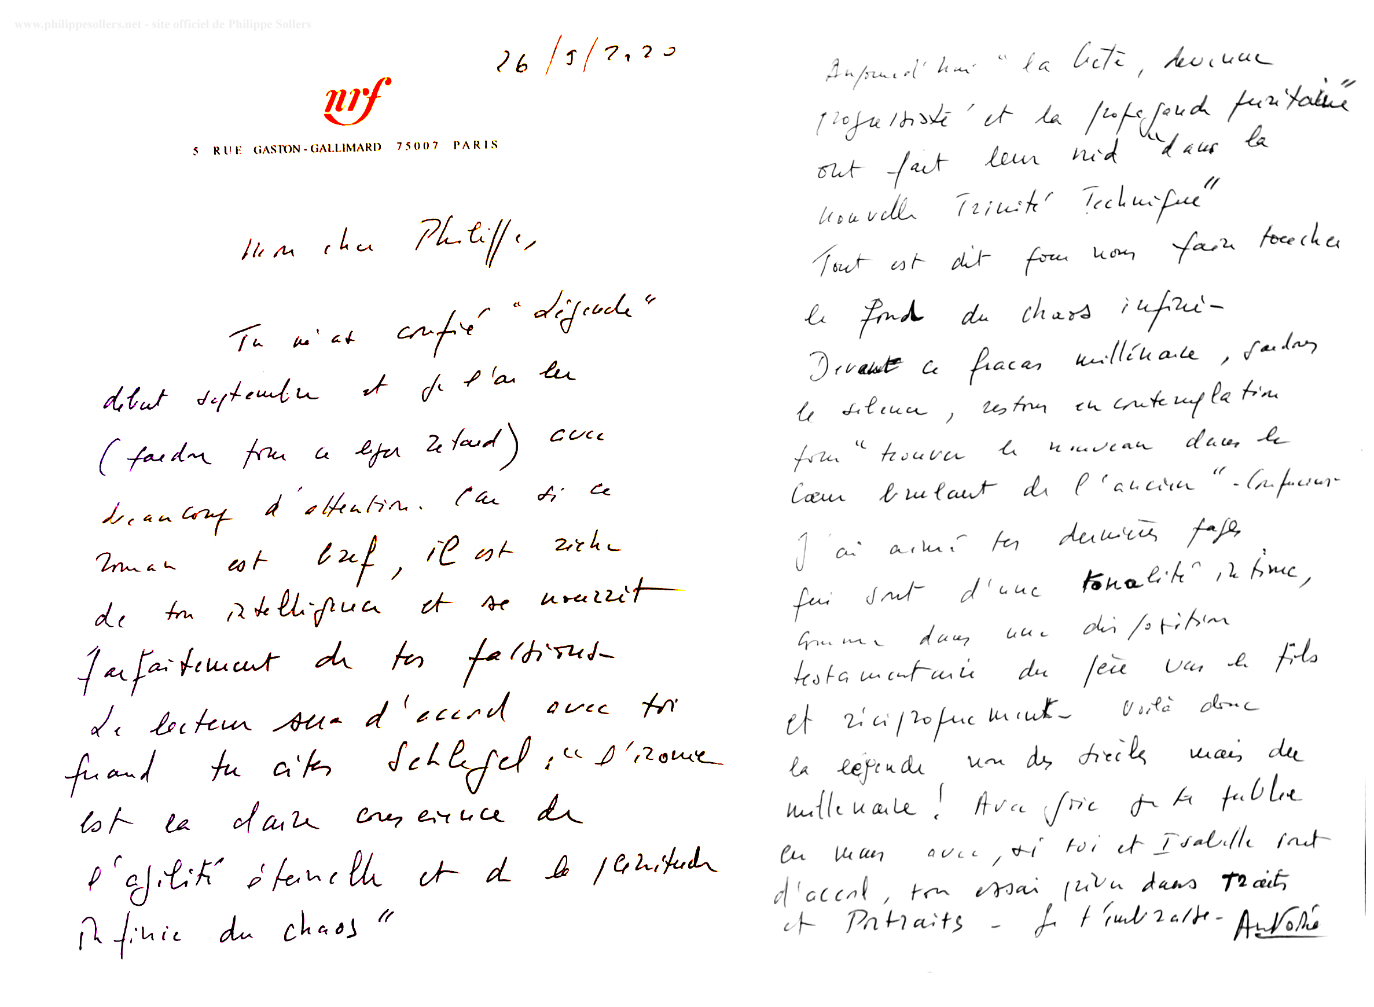 www.philippesollers.net - site officiel de Philippe Sollers
26/9/2020
nrf
5 RUE GASTON-GALLIMARD 75007 PARIS
Mon cher Philippe,
Tu m'as confié "Légende"
début septembre et je l'ai lu
(pardon pour ce léger retard) avec
beaucoup d'attention. Car si ce
roman est bref, il est riche
de ton intelligence et se nourrit
parfaitement de tes passions -
Le lecteur sera d'accord avec toi
quand tu cites Schlegel : "l'ironie
est la claire conscience de
l'agilité éternelle et de la plénitude
infinie du chaos"
Aujourd'hui "la bêtise, devenue
progressiste et la propagande puritaine"
ont fait leur nid "dans la
nouvelle Trinité Technique"
Tout est dit pour nous faire toucher
le fond du chaos infini -
Devant ce fracas millénaire, gardons
le silence, restons en contemplation
pour "trouver le nouveau dans le
cœur brulant de l'ancien" - Confucius -
J'ai aimé tes dernières pages
qui sont d'une tonalité intime,
comme dans une disposition
testamentaire du père vers le fils
et réciproquement - Voilà donc
la légende non des siècles mais du
millenaire ! Avec joie je te publie
en mars avec, si toi et Isabelle sont
d'accord, ton essai prévu dans Traits
et Portraits - Je t'embrasse - Antoine